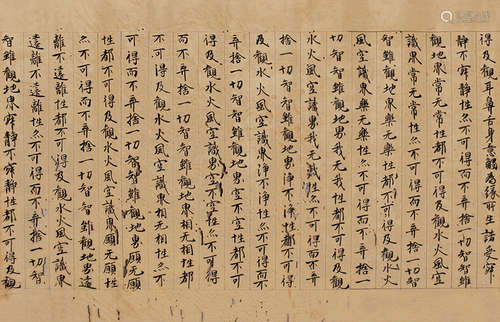 得及觀耳鼻舌身意觸為緣所生諸受寂
靜不寂靜性亦不可得而不弃捨一切智智雖
觀地界常无常性都不可得及觀水火風空
識界常无常性亦不可得而不弃捨一切智
智雖觀地界樂无樂性都不可得及觀水火
風空識界樂无樂性亦不可得而不弃捨一
切智智雖觀地界我无我性都不可得及觀
水火風空識界我无我性亦不可得而不弃
捨一切智智雖觀地界淨不淨性都不可得
及觀水火風空識界淨不淨性亦不可得而不
弃捨一切智智雖觀地界空不空性都不可
得及觀水火風空識界空不空性亦不可得
而不弃捨一切智智雖觀地界相无相性都
不可得及觀水火風空識界相无相性亦不
可得而不弃捨一切智智雖觀地界願无願
性都不可得及觀水火風空識界願无願性
亦不可得而不弃捨一切智智雖觀地界遠
離不遠離性都不可得及觀水火風空識界
遠離不遠離性亦不可得而不弃捨一切智
智雖觀地界寂靜不寂靜性都不可得及觀